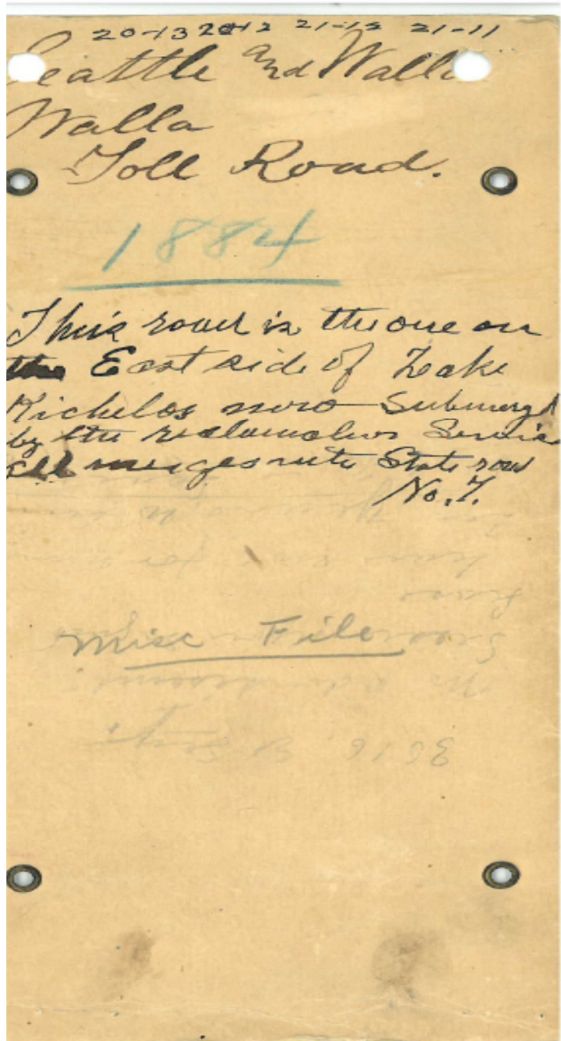 20-13 20-12 21-12 21-11
Seattle and Walla
Walla
Toll Road.
1884
This road is the one on
the East side of Lake
Kichelos now Submergd
by the reclamation Service
all merges into State road
No. 7.
Misc File